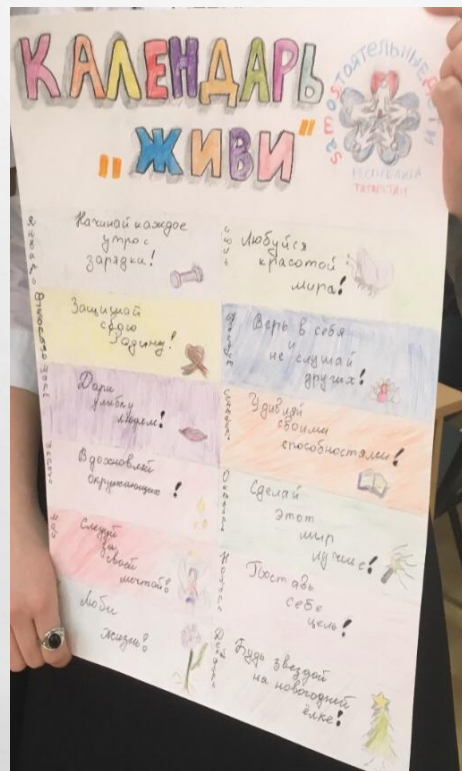 КАЛЕНДАРЬ
"ЖИВИ"
самоСТОЯТЕЛЬНЫЕ ДЕТИ
РЕСПУБЛИКА
ТАТАРСТАН
Январь
Начинай каждое
утро с
зарядки!
Февраль
Защищай
свою
Родину!
Март
Дари
улыбку
людям!
Апрель
Вдохновляй
окружающих!
Май
Следуй
за
своей
мечтой!
Июнь
Люби
жизнь!
Июль
Любуйся
красотой
мира!
Август
Верь в себя
и
не слушай
других!
Сентябрь
Удивляй
своими
способностями!
Октябрь
Сделай
этот
мир
лучше!
Ноябрь
Поставь
себе
цель!
Декабрь
Будь звездой
на новогодней
ёлке!